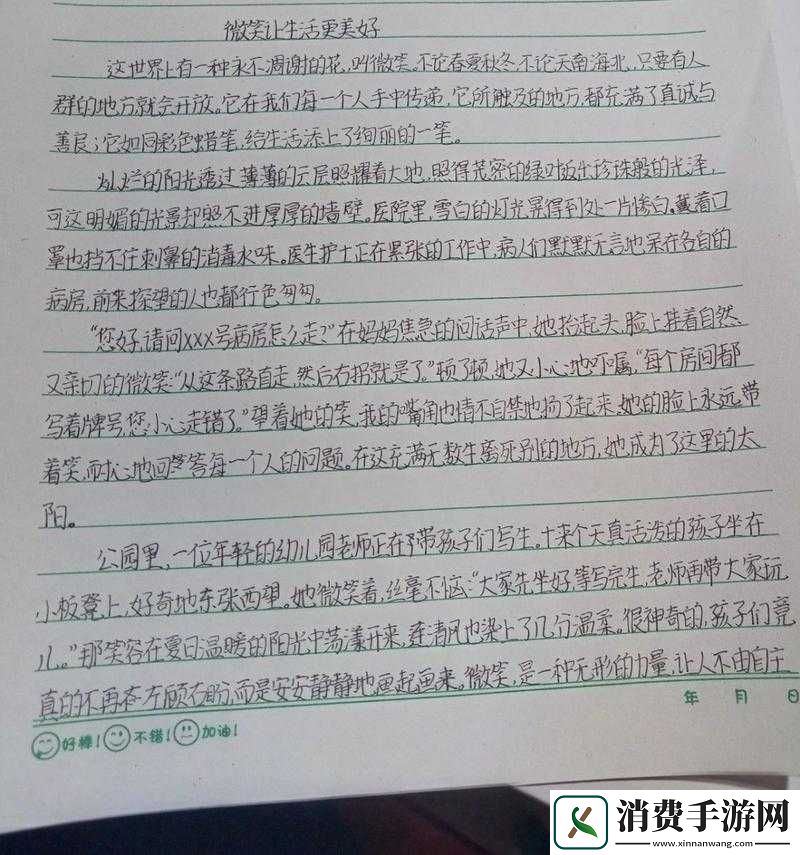 微笑让生活更美好
这世界上有一种永不凋谢的花,叫微笑。不论春夏秋冬,不论天南海北,只要有人
群的地方就会开放。它在我们每一个人手中传递,它所触及的地方,都充满了真诚与
善良;它如同彩色蜡笔,给生活添上了绚丽的一笔。
灿烂的阳光透过薄薄的云层照耀着大地,照得茂密的绿叶泛出珍珠般的光泽,
可这明媚的光景却照不进厚厚的墙壁。医院里,雪白的灯光晃得到处一片惨白。戴着口
罩也挡不住刺鼻的消毒水味。医生护士正在紧张的工作中,病人们默默无言地呆在各自的
病房,前来探望的人也都行色匆匆。
“您好,请问xxx号病房怎么走?”在妈妈焦急的问话声中,她抬起头,脸上挂着自然
又亲切的微笑:“从这条路直走,然后右拐就是了。”顿了顿,她又小心地叮嘱,“每个房间都
写着牌号,您小心走错了。”望着她的笑,我的嘴角也情不自禁地扬了起来,她的脸上永远带
着笑,耐心地回答每一个人的问题。在这充满无数生离死别的地方,她成为了这里的太
阳。
公园里,一位年轻的幼儿园老师正在带孩子们写生。十来个天真活泼的孩子坐在
小板凳上,好奇地东张西望。她微笑着,丝毫不恼:“大家先坐好,等写完生,老师再带大家玩
儿。”那笑容在夏日温暖的阳光中荡漾开来,连清风也染上了几分温柔。很神奇的,孩子们竟
真的不再左顾右盼,而是安安静静地画起画来。微笑,是一种无形的力量,让人不由自主
年 月 日
好棒! 不错! 加油!
消费手游网
www.xinnanwang.com